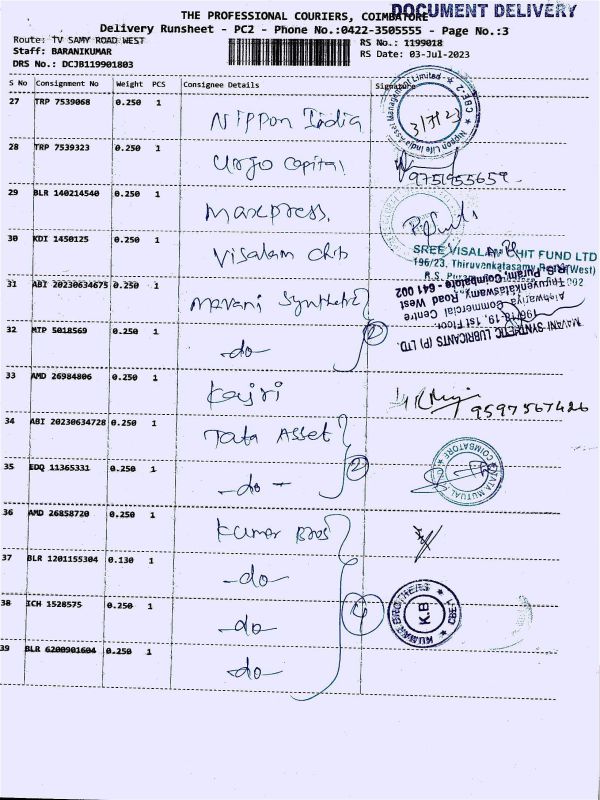 THE PROFESSIONAL COURIERS, COIMBATORE
DOCUMENT DELIVERY
Delivery Runsheet - PC2 - Phone No.:0422-3505555 - Page No.:3
Route: TV SAMY ROAD WEST
RS No.: 1199018
Staff: BARANIKUMAR
RS Date: 03-Jul-2023
DRS No.: DCJB119901803
S No Consignment No Weight PCS Consignee Details Signature
27 TRP 7539068 0.250 1 Nippon India
Nippon Life India Asset Management Limited * CBE-2 *
3/7/23
28 TRP 7539323 0.250 1 Urgo Capital
9751955659
29 BLR 140214540 0.250 1 Maxpress.
30 KDI 1450125 0.250 1 Visalam Chits
SREE VISALAM CHIT FUND LTD
196/23, Thiruvenkatasamy Road(West)
31 ABI 20230634675 0.250 1 Mavani Synthetic
MAVANI SYNTHETIC LUBRICANTS (P) LTD.
1st Floor,
Aishwariya Commercial Centre
Thiruvenkataswamy Road West
R.S. Puram, Coimbatore - 641 002
32 MTP 5018569 0.250 1 -do-
2
33 AMD 26984806 0.250 1 Kajri
9597567426
34 ABI 20230634728 0.250 1 Tata Asset
TATA MUTUAL
COIMBATORE
35 EDQ 11365331 0.250 1 -do-
2
36 AMD 26858720 0.250 1 Kumar Bros
37 BLR 1201155304 0.130 1 -do-
38 ICH 1528575 0.250 1 -do-
4
KUMAR BROTHERS * CBE-1 *
K.B
39 BLR 6200901604 0.250 1 -do-